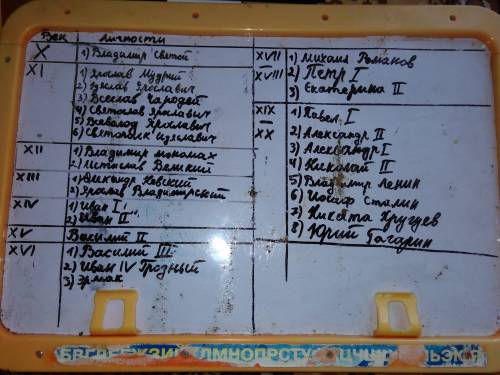 Век личности
X 1) Владимир Святой
XI 1) Ярослав Мудрий
2) Ізяслав Ярославич
3) Всеслав Чародей
4) Святослав Ярославич
5) Всеволод Ярославич
6) Святополк Изяславич
XII 1) Владимир мономах
2) Мстислав Великий
XIII 1) Александр Невский
2) Ярослав Владимирский
XIV 1) Иван I
2) Иван II
XV Василий II
XVI 1) Василий III
2) Иван IV Грозный
3) Эрмак
XVII 1) Михаил Романов
XVIII 2) Петр I
3) Екатерина II
XIX 1) Павел I
XX 2) Александр II
3) Александр I
4) Николай II
5) Владимир Ленин
6) Иосиф Сталин
7) Никита Хрущев
8) Юрий Гагарин